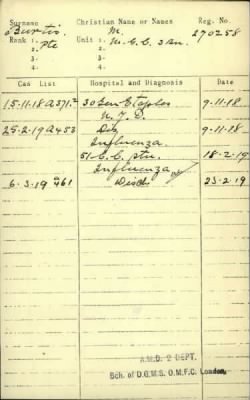 Surname Christian Name or Names Reg. No.
Burtis M. 270258
Rank 1. Pte Unit 1. M.G.C. 3 Bn.
2. 2.
3. 3.
4. 4.
Cas List Hospital and Diagnosis Date
15-11-18 A371.2 30 Gen Etaples 9-11-18
N.Y.D.
25-2-19 A453 Do 9-11-18
Influenza
51 C.C. Stn. 18-2-19
Influenza
6-3-19 461 Disch 23-2-19
A.M.D. 2 DEPT.
Bch. of D.G.M.S. O.M.F.C. London.